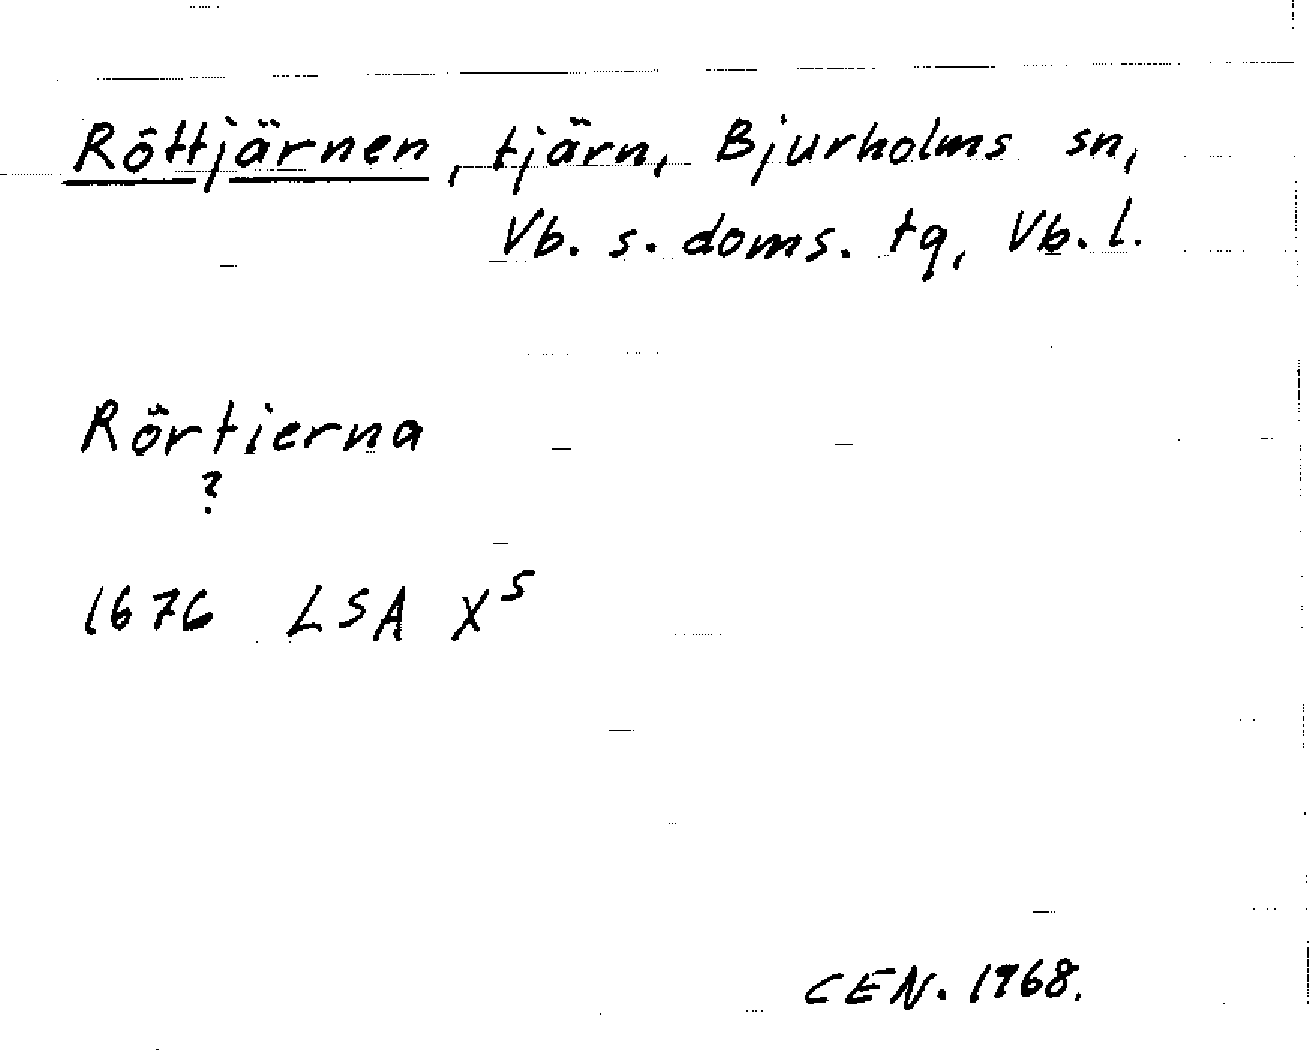 Röttjärnen, tjärn, Bjurholms sn,
Vb. s. doms. tg, Vb. l.
Rörtierna
?
1676 LSA X⁵
CEN. 1968.